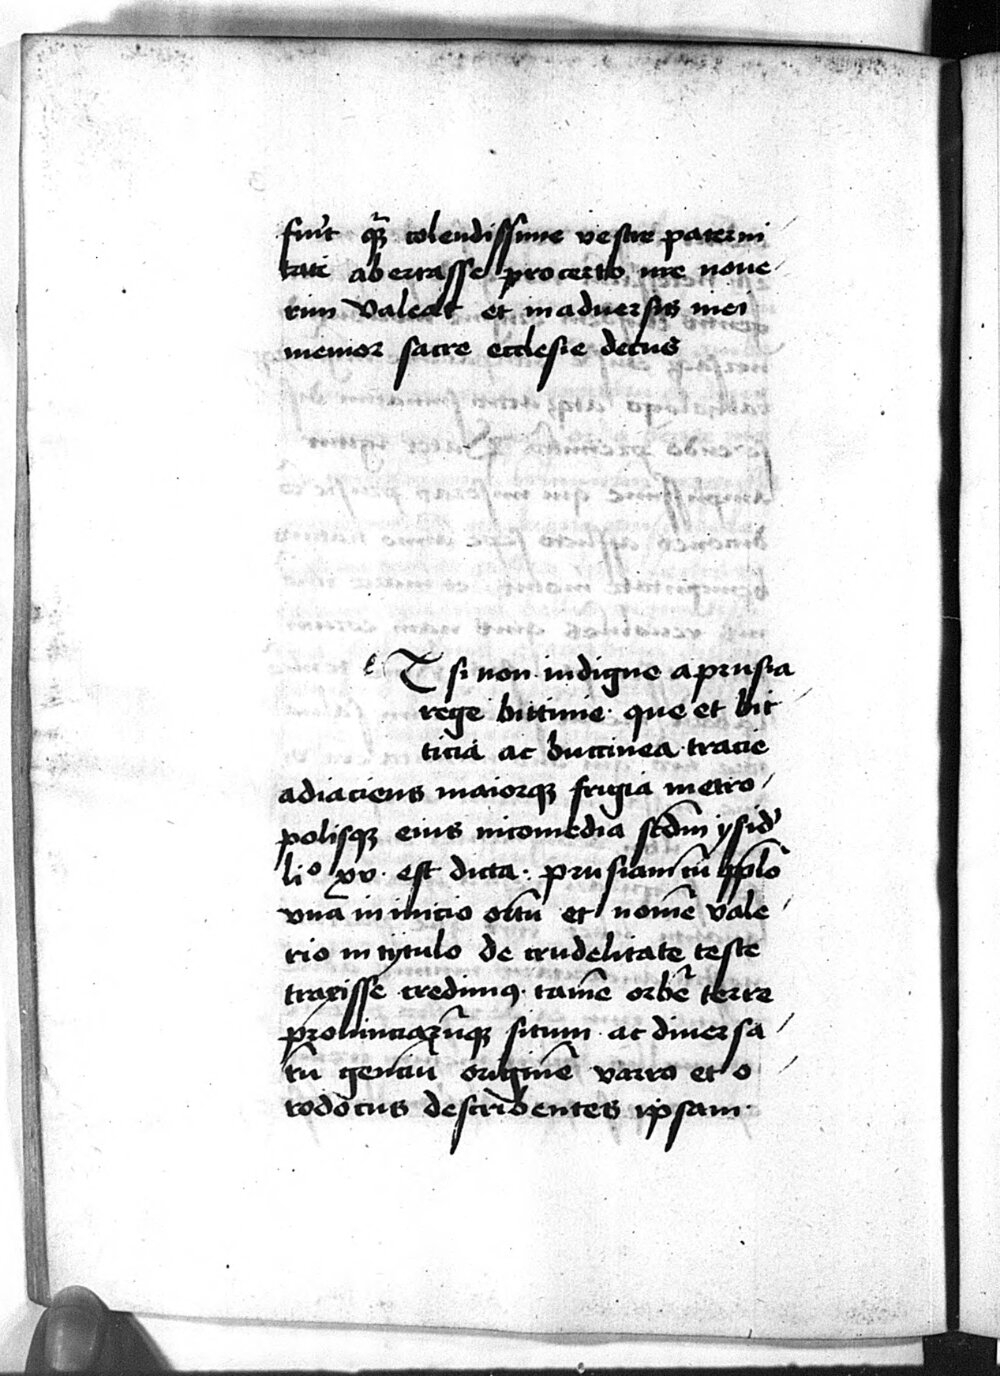 fiũt qʒ colendissime vestre paterni
tati aberrasse pro certo me nove
rim Valeat et in adversis mei
memor sacre ecclesie decus
Et si non indigne a prusia
rege bittinie · que et bit
ticia ac buccinea tracie
adiaciens maiorqʒ frigia metro
polisqʒ eius nicomedia scdm ysid'
li° xv · est dicta · prusiam cũ
vna in inicio ortũ et nomẽ vale
rio in tytulo de crudelitate teste
traxisse credimꝰ · tamẽ orbẽ terre
provinciarũqʒ situm ac diversa
rũ genciũ originẽ varro et o
rodotus describentes ipsam ·